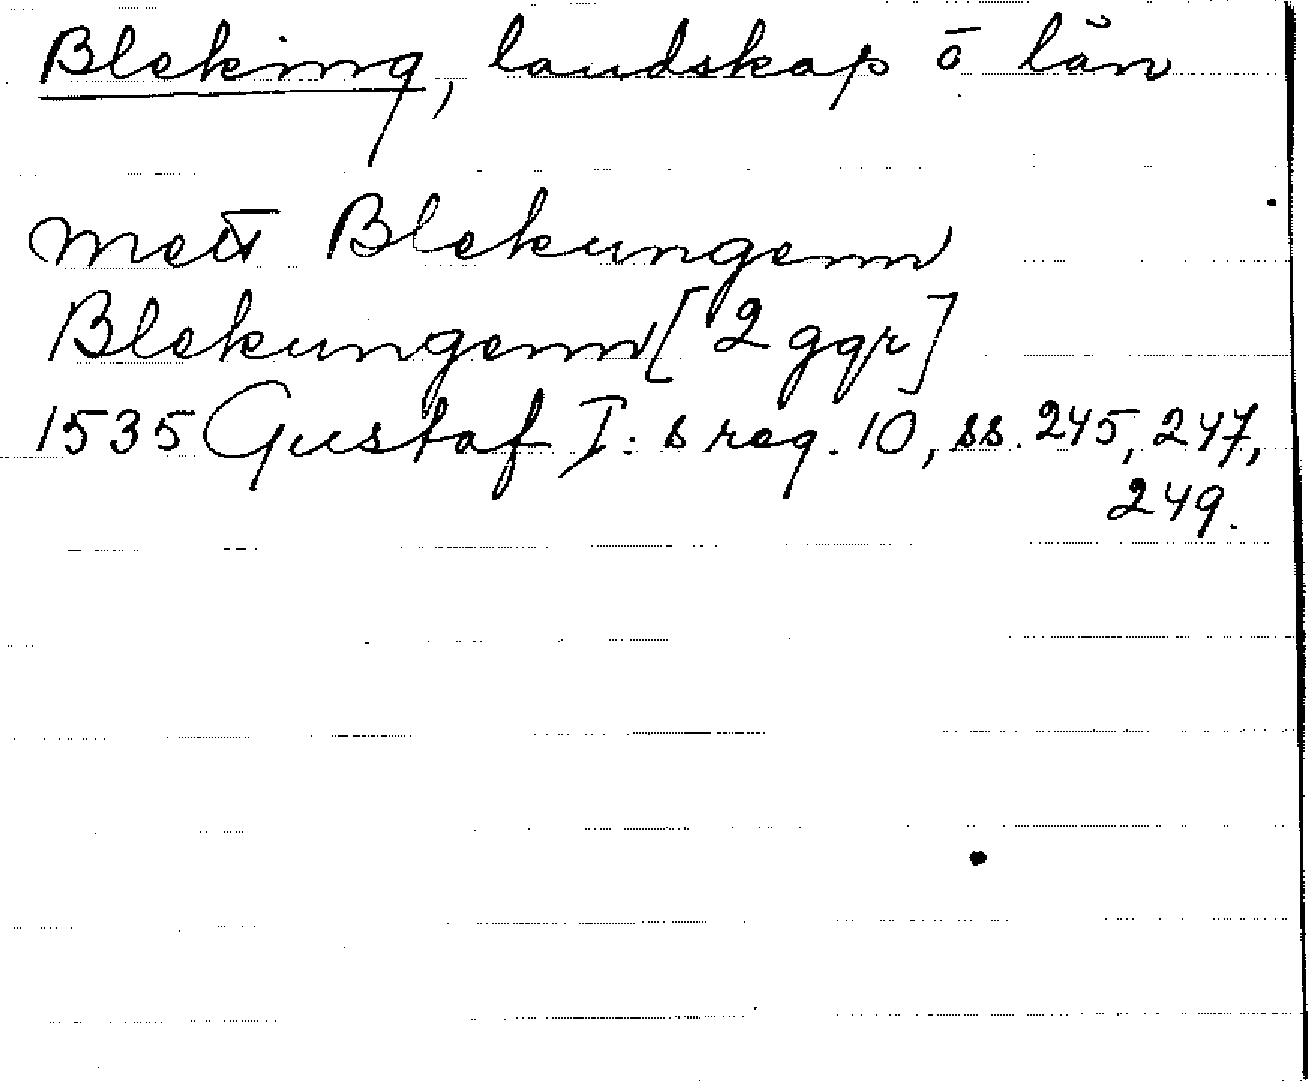 Bleking, landskap o län
mett Blekungenn
Blekungenn [2 ggr]
1535 Gustaf I:s reg. 10, ss. 245, 247,
249.